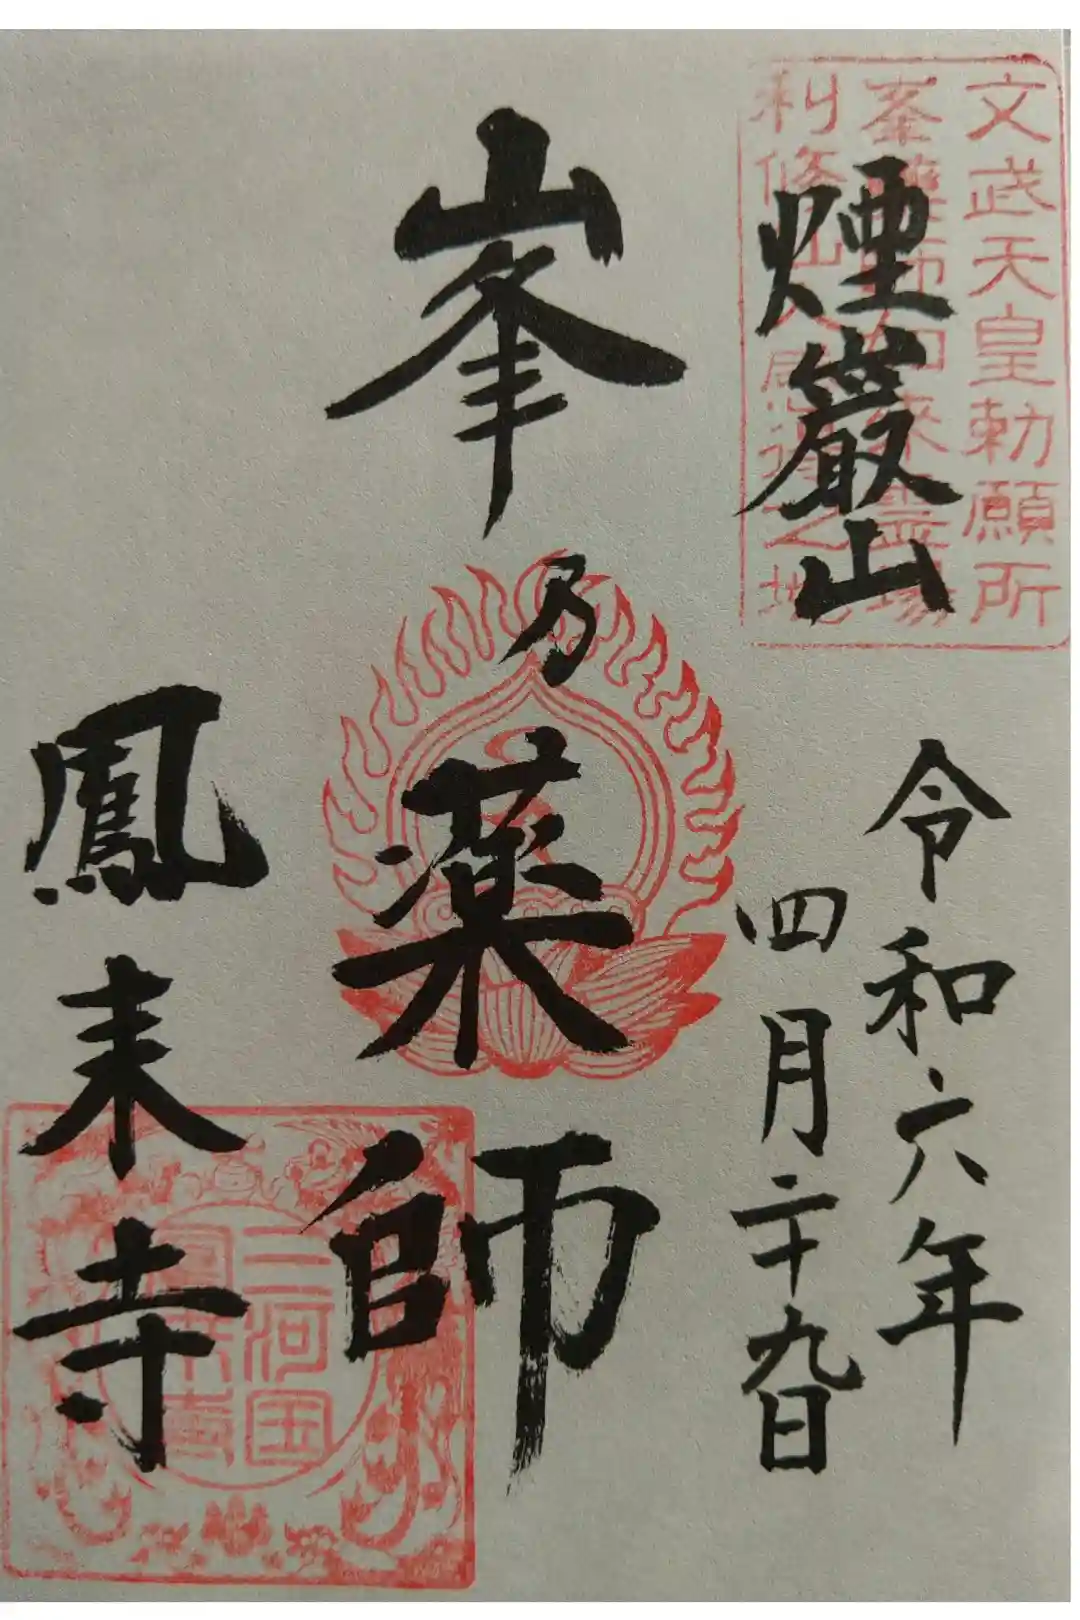 文武天皇勅願所
峯薬師如来霊場
利修仙人
之地
煙巖山
令和六年
四月二十九日
峯乃薬師
鳳来寺
三河国